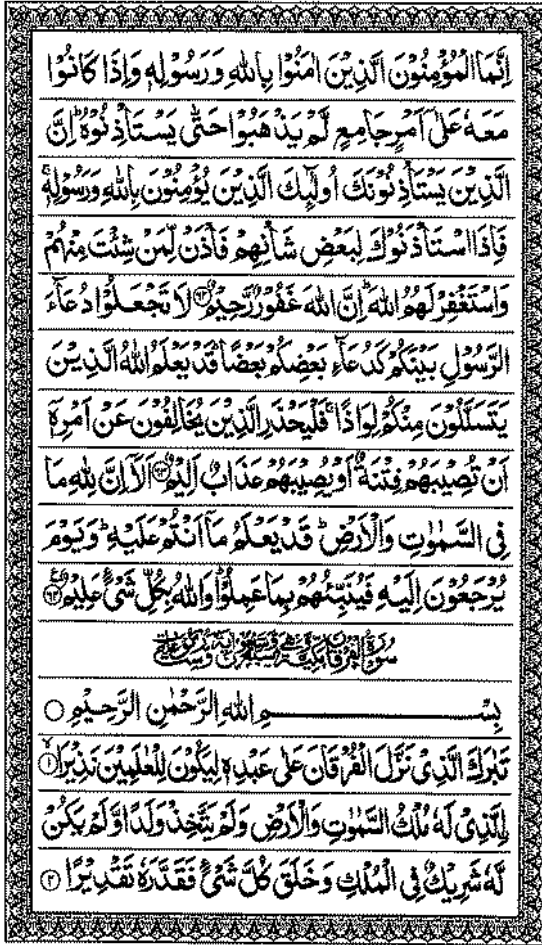 اِنَّمَا الْمُؤْمِنُوْنَ الَّذِیْنَ اٰمَنُوْا بِاللّٰهِ وَرَسُوْلِهٖ وَاِذَا كَانُوْا
مَعَهٗ عَلٰۤی اَمْرٍ جَامِعٍ لَّمْ یَذْهَبُوْا حَتّٰی یَسْتَاْذِنُوْهُ ؕ اِنَّ
الَّذِیْنَ یَسْتَاْذِنُوْنَكَ اُولٰٓئِكَ الَّذِیْنَ یُؤْمِنُوْنَ بِاللّٰهِ وَرَسُوْلِهٖ ۚ
فَاِذَا اسْتَاْذَنُوْكَ لِبَعْضِ شَاْنِهِمْ فَاْذَنْ لِّمَنْ شِئْتَ مِنْهُمْ
وَاسْتَغْفِرْ لَهُمُ اللّٰهَ ؕ اِنَّ اللّٰهَ غَفُوْرٌ رَّحِیْمٌ ﴿۶۲﴾ لَا تَجْعَلُوْا دُعَآءَ
الرَّسُوْلِ بَیْنَكُمْ كَدُعَآءِ بَعْضِكُمْ بَعْضًا ؕ قَدْ یَعْلَمُ اللّٰهُ الَّذِیْنَ
یَتَسَلَّلُوْنَ مِنْكُمْ لِوَاذًا ۚ فَلْیَحْذَرِ الَّذِیْنَ یُخَالِفُوْنَ عَنْ اَمْرِهٖۤ
اَنْ تُصِیْبَهُمْ فِتْنَةٌ اَوْ یُصِیْبَهُمْ عَذَابٌ اَلِیْمٌ ﴿۶۳﴾ اَلَاۤ اِنَّ لِلّٰهِ مَا
فِی السَّمٰوٰتِ وَالْاَرْضِ ؕ قَدْ یَعْلَمُ مَاۤ اَنْتُمْ عَلَیْهِ ؕ وَیَوْمَ
یُرْجَعُوْنَ اِلَیْهِ فَیُنَبِّئُهُمْ بِمَا عَمِلُوْا ؕ وَاللّٰهُ بِكُلِّ شَیْءٍ عَلِیْمٌ ﴿۶۴﴾
سُوْرَةُ الْفُرْقَانِ مَكِّیَّةٌ
بِسْمِ اللّٰهِ الرَّحْمٰنِ الرَّحِیْمِ
تَبٰرَكَ الَّذِیْ نَزَّلَ الْفُرْقَانَ عَلٰی عَبْدِهٖ لِیَكُوْنَ لِلْعٰلَمِیْنَ نَذِیْرًا ﴿۱﴾
الَّذِیْ لَهٗ مُلْكُ السَّمٰوٰتِ وَالْاَرْضِ وَلَمْ یَتَّخِذْ وَلَدًا وَّلَمْ یَكُنْ
لَّهٗ شَرِیْكٌ فِی الْمُلْكِ وَخَلَقَ كُلَّ شَیْءٍ فَقَدَّرَهٗ تَقْدِیْرًا ﴿۲﴾